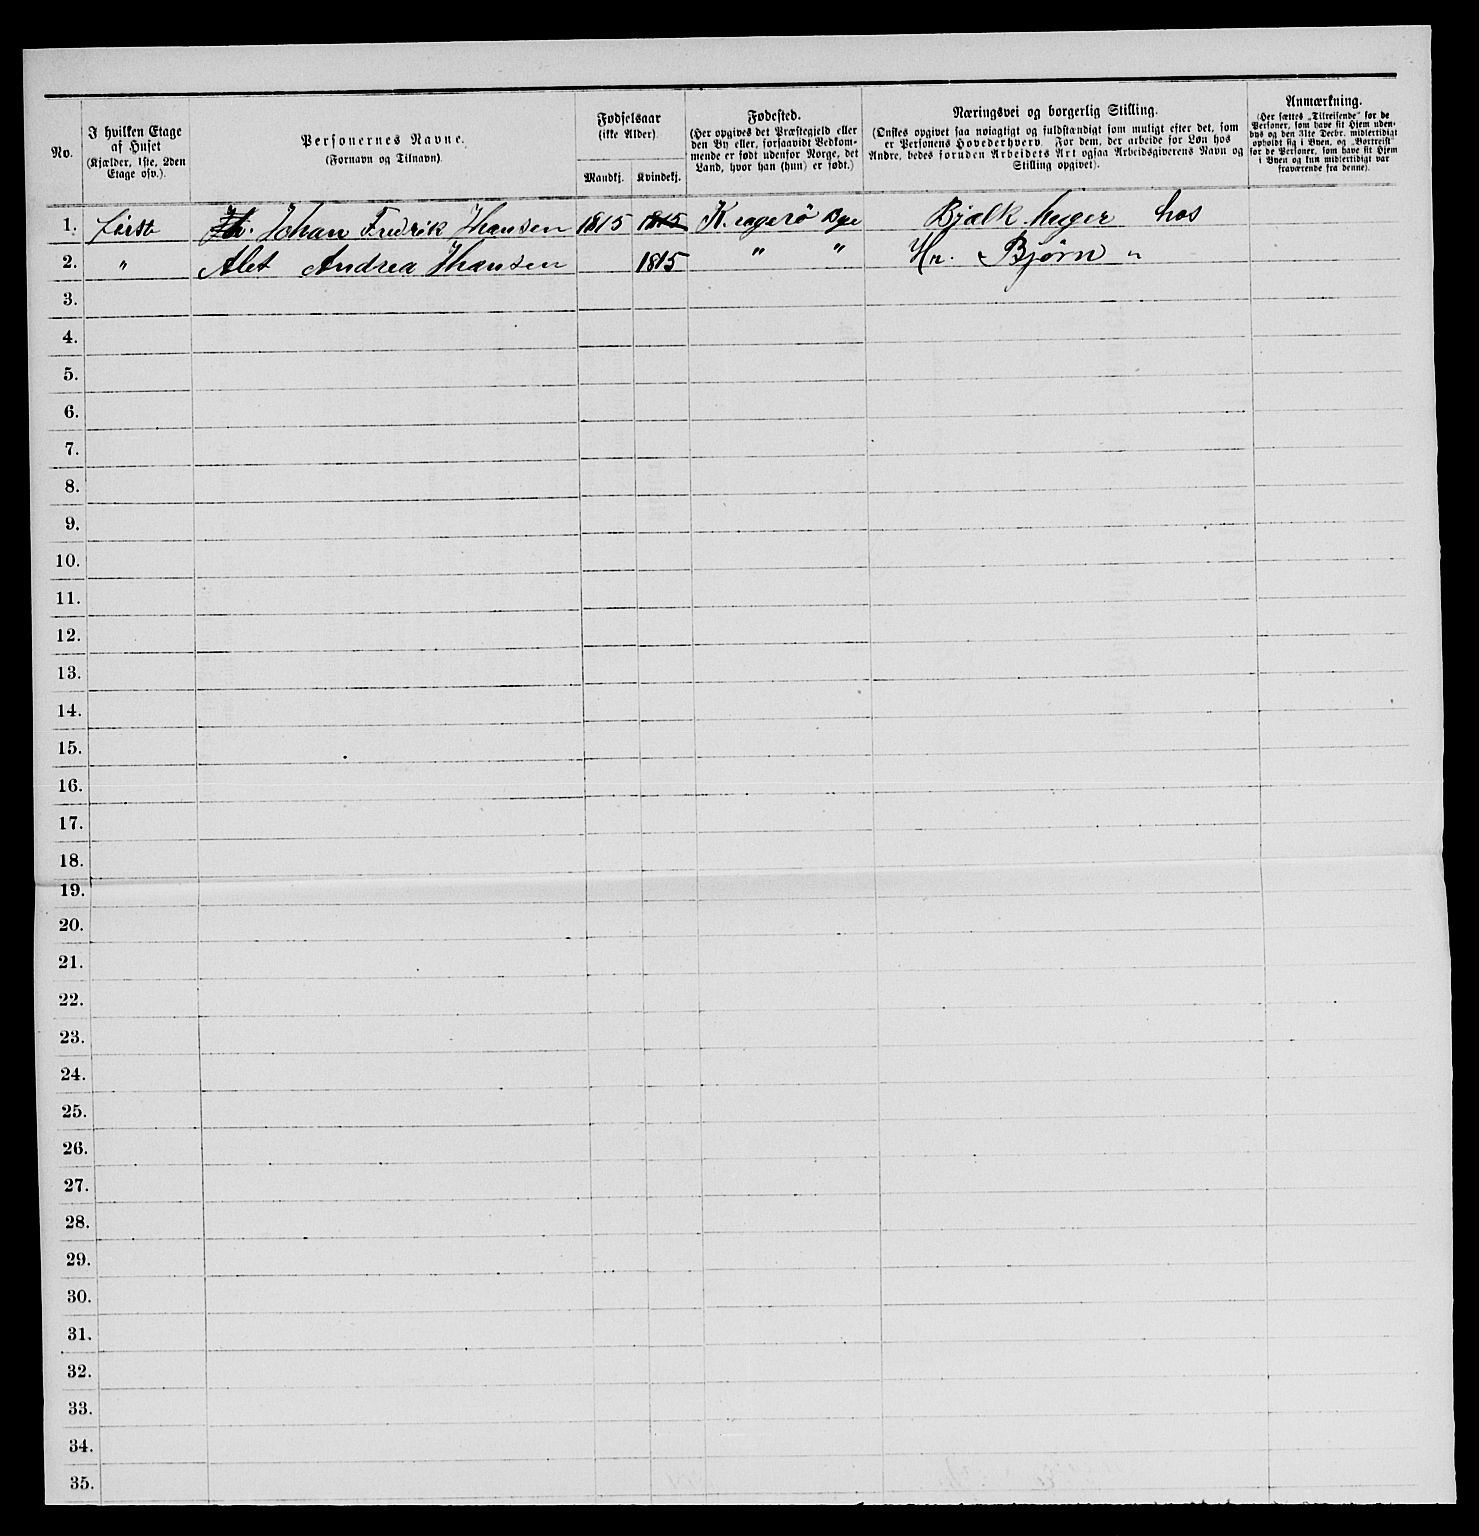 No.
I hvilken Etage
af Huset
(Kjælder, 1ste, 2den
Etage osv.).
Personernes Navne.
(Fornavn og Tilnavn).
Fødselsaar
(ikke Alder).
Mandkj. Kvindekj.
Fødested.
(Her opgives det Præstegjeld eller
den By eller, forsaavidt Vedkom-
mende er født udenfor Norge, det
Land, hvor han (hun) er født.)
Næringsvei og borgerlig Stilling.
(Ønskes opgivet saa nøiagtigt og fuldstændigt som muligt efter det, som
er Personens Hovederhverv. For dem, der arbeide for Løn hos
Andre, bedes foruden Arbeidets Art ogsaa Arbeidsgiverens Navn og
Stilling opgivet).
Anmærkning.
(Her sættes „Tilreisende“ for de
Personer, som have sit Hjem uden-
bys og den 31te Decbr. midlertidigt
opholdt sig i Byen, og „Bortreist“
for de Personer, som have sit Hjem
i Byen og kun midlertidigt var
fraværende fra denne).
1. første Johan Fredrik Hansen 1815 1815 Kragerö Bye Bjælk hos
2. " Alet Andrea Hansen 1815 " " Hr. Bjørn "
3.
4.
5.
6.
7.
8.
9.
10.
11.
12.
13.
14.
15.
16.
17.
18.
19.
20.
21.
22.
23.
24.
25.
26.
27.
28.
29.
30.
31.
32.
33.
34.
35.